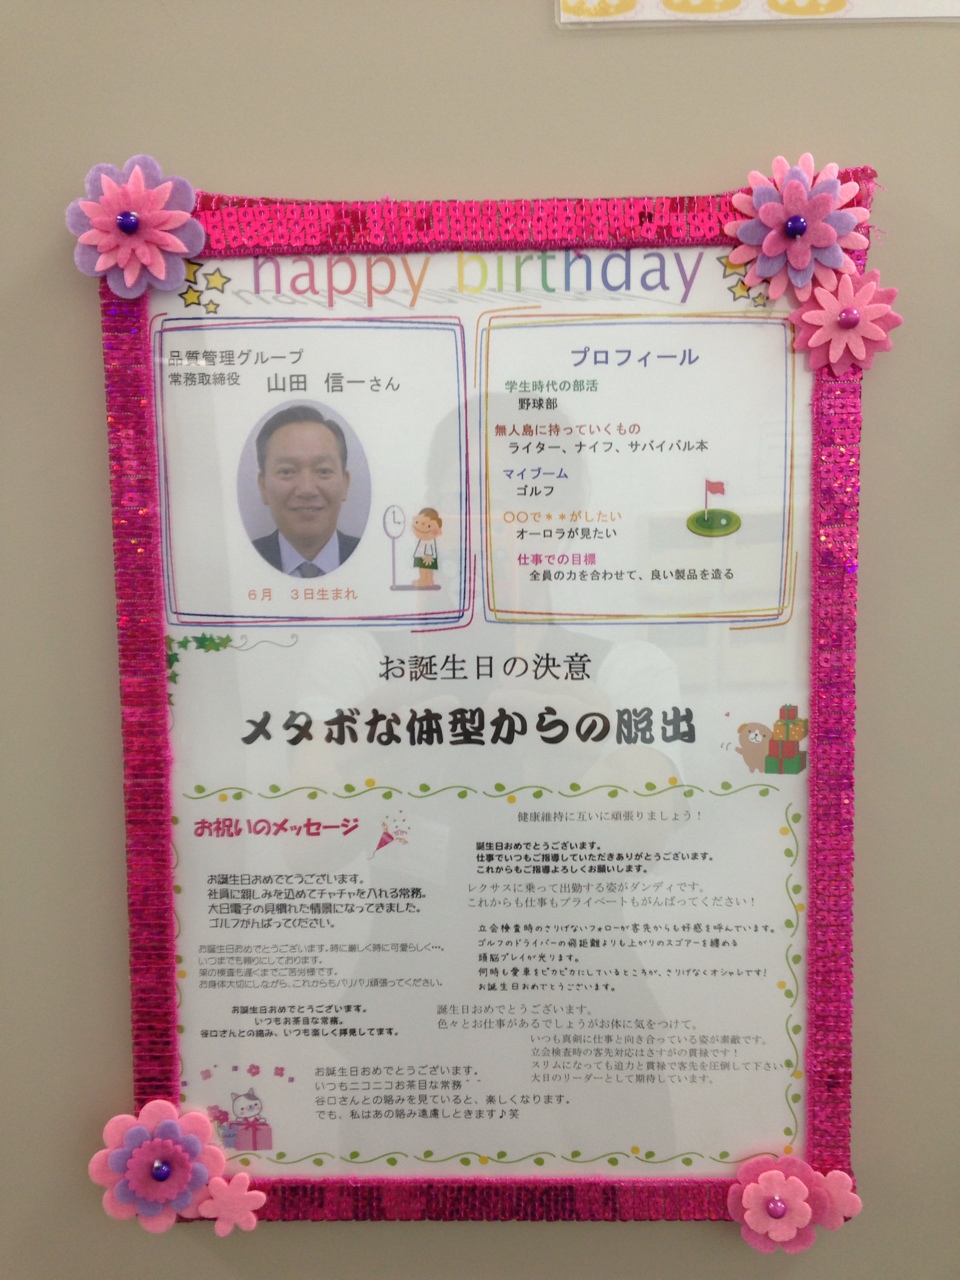 happy birthday
品質管理グループ
常務取締役 山田 信一さん
6月 3日生まれ
プロフィール
学生時代の部活
野球部
無人島に持っていくもの
ライター、ナイフ、サバイバル本
マイブーム
ゴルフ
〇〇で＊＊がしたい
オーロラが見たい
仕事での目標
全員の力を合わせて、良い製品を造る
お誕生日の決意
メタボな体型からの脱出
お祝いのメッセージ
お誕生日おめでとうございます。
社員に親しみを込めてチャチャを入れる常務。
大日電子の見慣れた情景になってきました。
ゴルフがんばってください。
お誕生日おめでとうございます。時に厳しく時に可愛らしく・・・。
いつまでも頼りにしております。
築の検査も遅くまでご苦労様です。
お身体大切にしながら、これからもバリバリ頑張ってください。
お誕生日おめでとうございます。
いつもお茶目な常務。
谷口さんとの絡み、いつも楽しく拝見してます。
お誕生日おめでとうございます。
いつもニコニコお茶目な常務＾＾
谷口さんとの絡みを見ていると、楽しくなります。
でも、私はあの絡み遠慮しときます♪笑
健康維持に互いに頑張りましょう！
誕生日おめでとうございます。
仕事でいつもご指導していただきありがとうございます。
これからもご指導よろしくお願いします。
レクサスに乗って出勤する姿がダンディです。
これからも仕事もプライベートもがんばってください！
立会検査時のさりげないフォローが客先からも好感を呼んでいます。
ゴルフのドライバーの飛距離よりも上がりのスコアーを纏める
頭脳プレイが光ります。
何時も愛車をピカピカにしているところが、さりげなくオシャレです！
お誕生日おめでとうございます。
誕生日おめでとうございます。
色々とお仕事があるでしょうがお体に気をつけて。
いつも真剣に仕事と向き合っている姿が素敵です。
立会検査時の客先対応はさすがの貫禄です！
スリムになっても迫力と貫禄で客先を圧倒して下さい。
大日のリーダーとして期待しています。